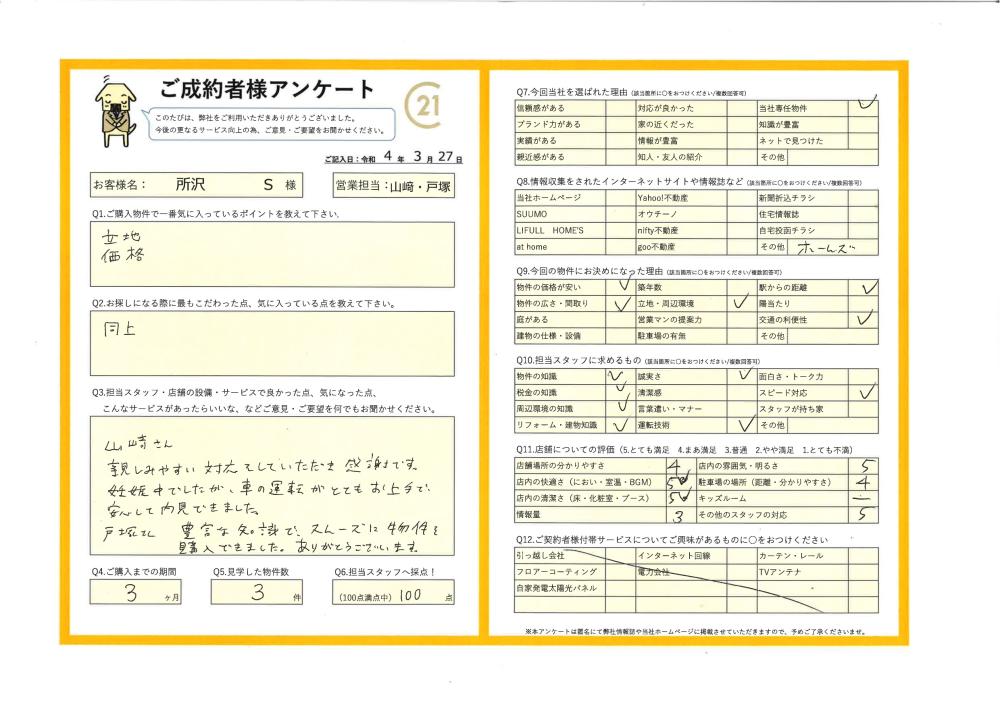 ご成約者様アンケート
21
このたびは、弊社をご利用いただきありがとうございました。
今後の更なるサービス向上の為、ご意見・ご要望をお聞かせください。
ご記入日:令和 4 年 3 月 27 日
お客様名: 所沢 S 様 営業担当:山﨑・戸塚
Q1.ご購入物件で一番気に入っているポイントを教えて下さい.
立地
価格
Q2.お探しになる際に最もこだわった点、気に入っている点を教えて下さい。
同上
Q3.担当スタッフ・店舗の設備・サービスで良かった点、気になった点、
こんなサービスがあったらいいな、などご意見・ご要望を何でもお聞かせください。
山崎さん
親しみやすい対応をしていただき感謝です。
妊娠中でしたが、車の運転がとてもお上手で、
安心して内見できました。
戸塚さん 豊富な知識で、スムーズに物件を
購入できました。ありがとうございます。
Q4.ご購入までの期間 Q5.見学した物件数 Q6.担当スタッフへ採点!
3 ヶ月 3 件 (100点満点中) 100 点
Q7.今回当社を選ばれた理由 (該当箇所に〇をおつけください/複数回答可)
信頼感がある 対応が良かった 当社専任物件 ✓
ブランド力がある 家の近くだった 知識が豊富
実績がある 情報が豊富 ネットで見つけた
親近感がある 知人・友人の紹介 その他
Q8.情報収集をされたインターネットサイトや情報誌など (該当箇所に〇をおつけください/複数回答可)
当社ホームページ Yahoo!不動産 新聞折込チラシ
SUUMO オウチーノ 住宅情報誌
LIFULL HOME'S nifty不動産 自宅投函チラシ
at home goo不動産 その他 ホームズ
Q9.今回の物件にお決めになった理由 (該当箇所に〇をおつけください/複数回答可)
物件の価格が安い ✓ 築年数 駅からの距離 ✓
物件の広さ・間取り ✓ 立地・周辺環境 ✓ 陽当たり
庭がある 営業マンの提案力 交通の利便性 ✓
建物の仕様・設備 駐車場の有無 その他
Q10.担当スタッフに求めるもの (該当箇所に〇をおつけください/複数回答可)
物件の知識 ✓ 誠実さ ✓ 面白さ・トーク力
税金の知識 ✓ 清潔感 スピード対応 ✓
周辺環境の知識 ✓ 言葉遣い・マナー スタッフが持ち家
リフォーム・建物知識 ✓ 運転技術 ✓ その他
Q11.店舗についての評価 (5.とても満足 4.まあ満足 3.普通 2.やや満足 1.とても不満)
店舗場所の分かりやすさ 4 店内の雰囲気・明るさ 5
店内の快適さ(におい・室温・BGM) 5 駐車場の場所(距離・分かりやすさ) 4
店内の清潔さ(床・化粧室・ブース) 5 キッズルーム ―
情報量 3 その他のスタッフの対応 5
Q12.ご契約者様付帯サービスについてご興味があるものに〇をおつけください
引っ越し会社 インターネット回線 カーテン・レール
フロアーコーティング 電力会社 TVアンテナ
自家発電太陽光パネル
※本アンケートは匿名にて弊社情報誌や当社ホームページに掲載させていただきますので、予めご了承くださいませ。